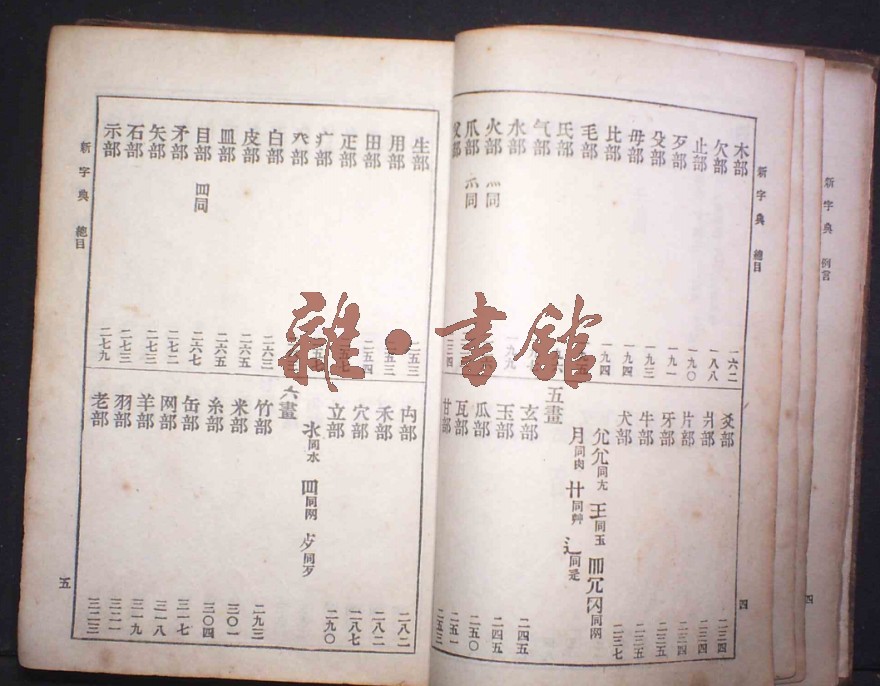 新字典 例言
四
新字典 總目
木部 一六二
欠部 一八八
止部 一九〇
歹部 一九一
殳部 一九三
毋部 一九四
比部 一九四
毛部
氏部
气部
水部 一九九
火部 灬同
爪部 爫同
父部
爻部 二三四
爿部 二三四
片部 二三四
牙部 二三五
牛部 二三五
犬部 二三七
尣同尢 王同玉 同网
月同肉 艹同艸 辶同辵
五畫
玄部 二四五
玉部 二四五
瓜部 二五〇
瓦部 二五一
甘部 二五三
四
生部 二五三
用部 二五三
田部 二五四
疋部 二五七
疒部
癶部
白部 二六二
皮部 二六五
皿部 二六五
目部 罒同 二六七
矛部 二七二
矢部 二七三
石部 二七三
示部 二七九
禸部 二八二
禾部 二八二
穴部 二八七
立部 二九〇
氺同水 罒同网 歺同歹
六畫
竹部 二九三
米部 三〇一
糸部 三〇四
缶部 三一七
网部 三一八
羊部 三一九
羽部 三二一
老部 三二三
新字典 總目
五
雜·書館